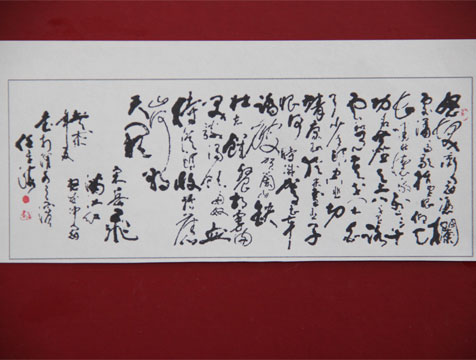 怒发冲冠凭阑
处潇潇雨歇抬望眼仰天
长啸壮怀激烈三十
功名尘与土八千里路
云和月莫等闲白
了少年头空悲切
靖康耻犹未雪臣子
恨何时灭驾长车
踏破贺兰山缺
壮志饥餐胡虏肉
笑谈渴饮匈奴血
待从头收拾旧
山河朝
天阙
宋岳飞
满江红